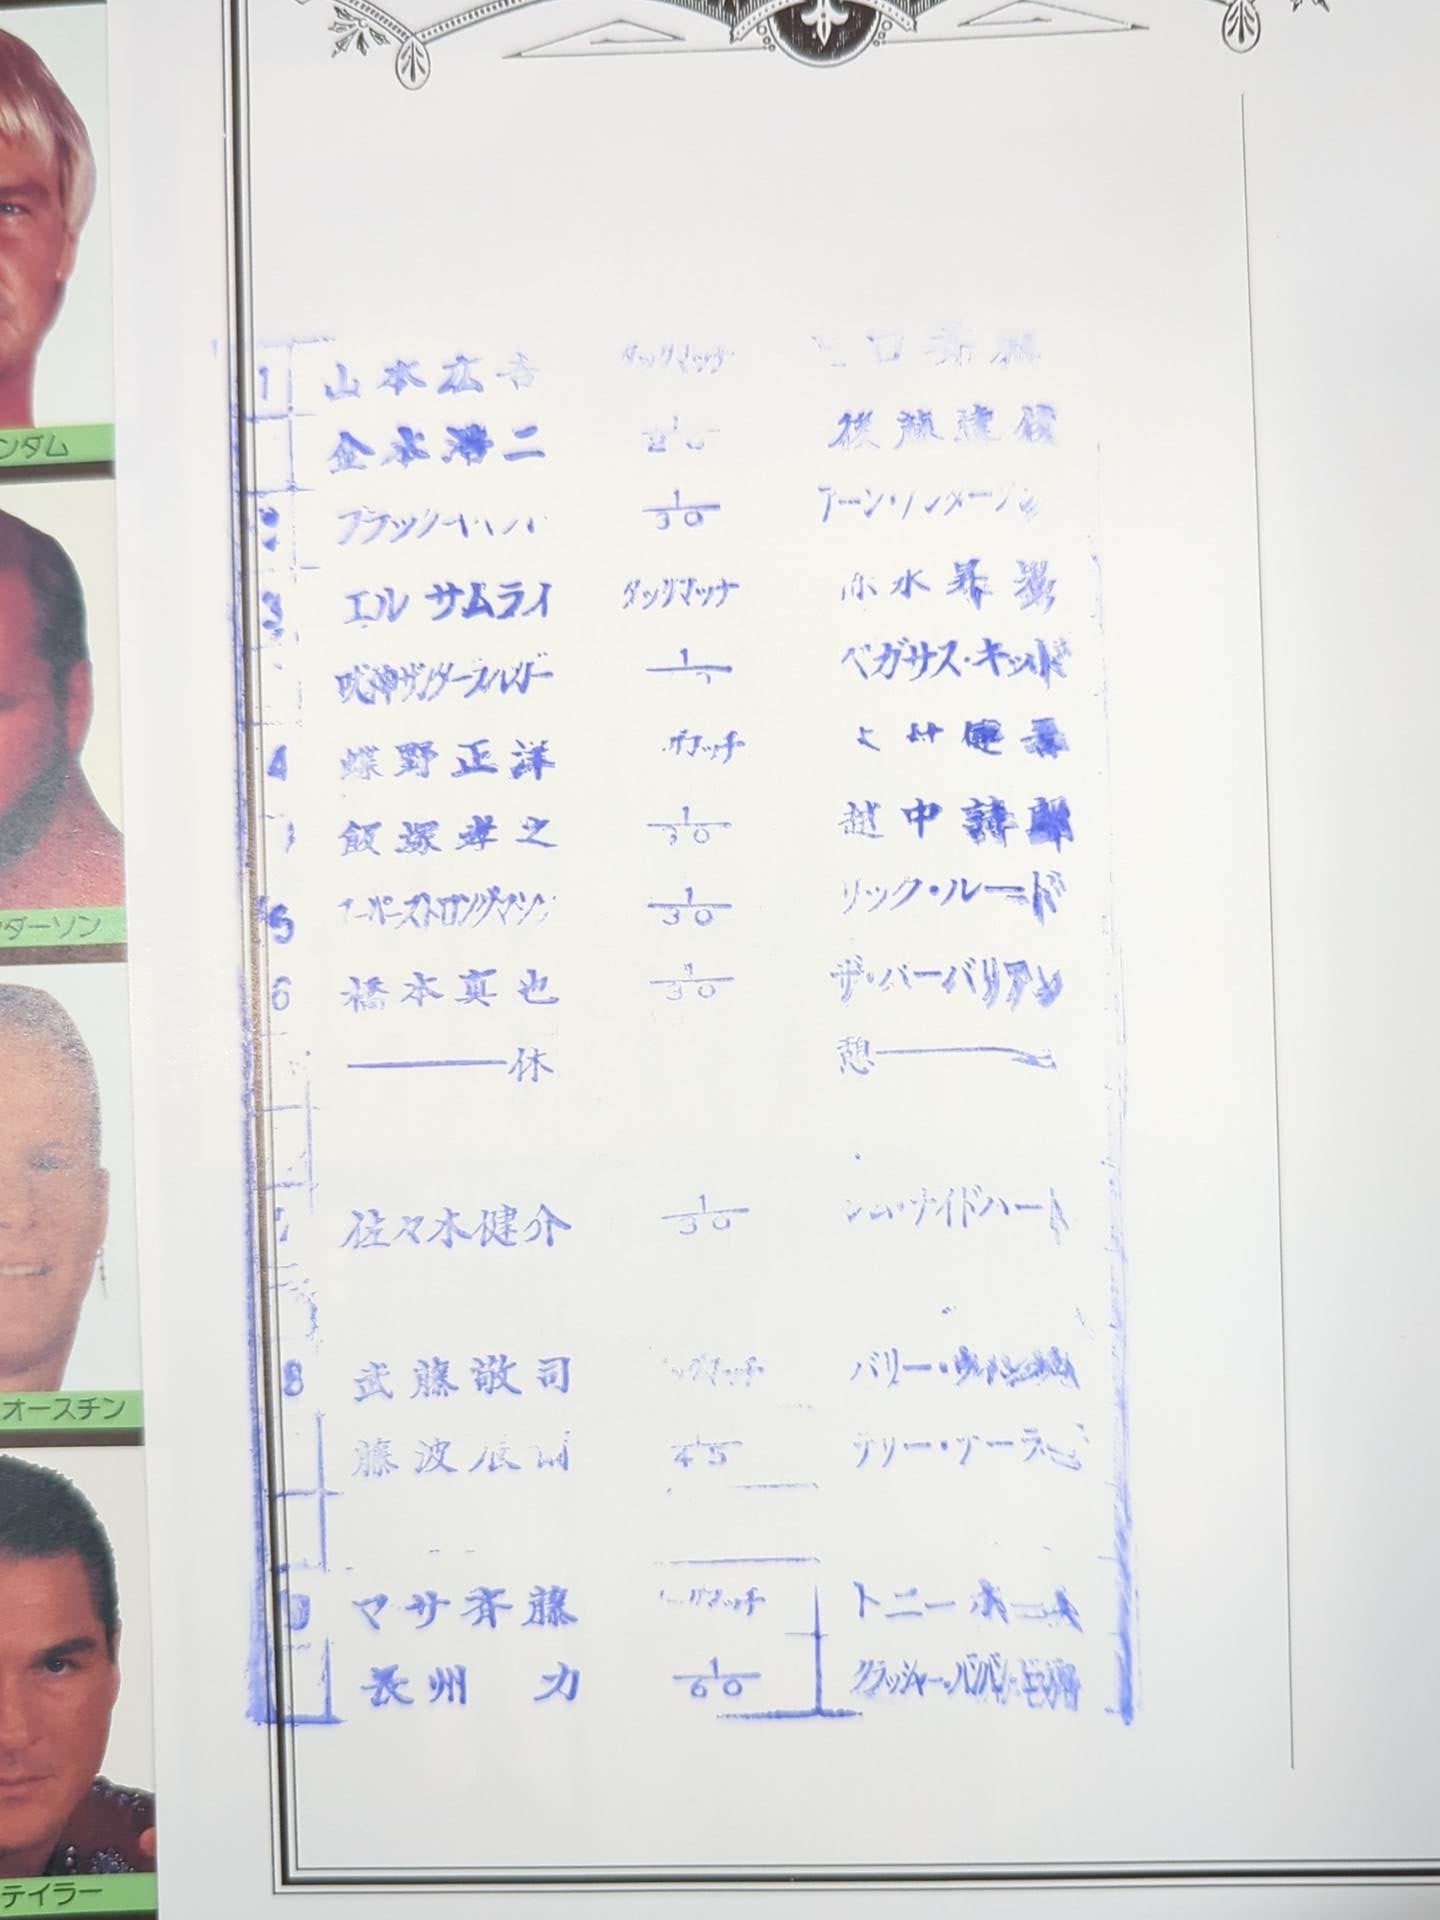 ンダム
ダーソン
オースチン
テイラー
1 山本広吉 タッグマッチ ヒロ斉藤
金本浩二 後藤達俊
2 ブラック 1/30 アーン・アンダーソン
3 エルサムライ タッグマッチ 赤水昇
獣神サンダーライガー 1 ペガサス・キッド
4 蝶野正洋 グマッチ 木村健吾
飯塚孝之 1/30 越中詩郎
5 スーパーストロングマシン 1/30 リック・ルード
6 橋本真也 1/30 ザ・バーバリアン
休 憩
7 佐々木健介 1/30 ジム・ナイドハート
8 武藤敬司 タッグマッチ バリー・
藤波辰爾 1/45 テリー・テーラー
マサ斉藤 グマッチ トニーホーム
長州 力 1/60 クラッシャー・バンバン・ビガロ